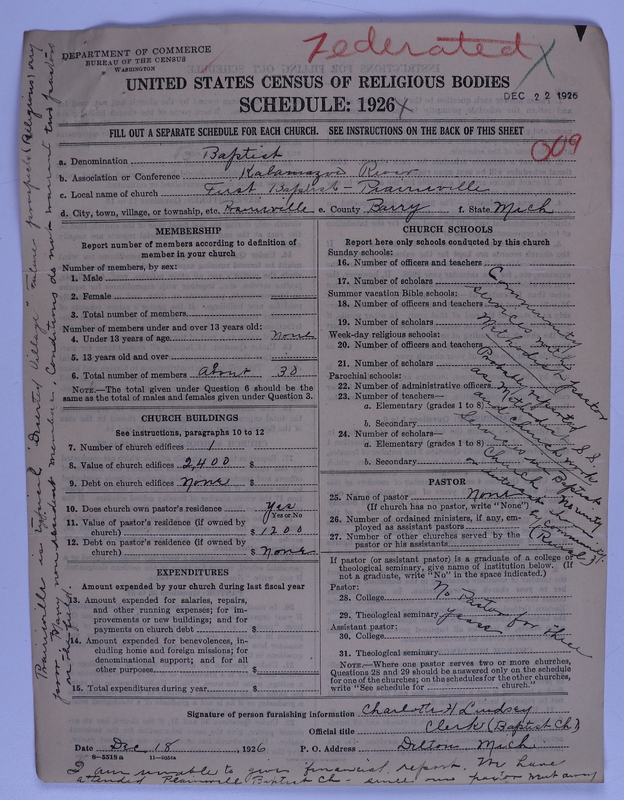 Federated X
DEPARTMENT OF COMMERCE
BUREAU OF THE CENSUS
WASHINGTON
UNITED STATES CENSUS OF RELIGIOUS BODIES
DEC 22 1926
SCHEDULE: 1926
FILL OUT A SEPARATE SCHEDULE FOR EACH CHURCH. SEE INSTRUCTIONS ON THE BACK OF THIS SHEET
009
a. Denomination Baptist
b. Association or Conference Kalamazoo River
c. Local name of church First Baptist - Prairieville
d. City, town, village, or township, etc. Prairieville e. County Barry f. State Mich
MEMBERSHIP
Report number of members according to definition of
member in your church
Number of members, by sex:
1. Male
2. Female
3. Total number of members
Number of members under and over 13 years old:
4. Under 13 years of age None
5. 13 years old and over
6. Total number of members About 38
NOTE.—The total given under Question 6 should be
same as the total of males and females given under Question 3.
CHURCH BUILDINGS
See instructions, paragraphs 10 to 12
7. Number of church edifices 1
8. Value of church edifices 2,400 $
9. Debt on church edifices None $
10. Does church own pastor's residence Yes
Yes or No
11. Value of pastor's residence (if owned by
church) $ 1200
12. Debt on pastor's residence (if owned by
church) $ None
EXPENDITURES
Amount expended by your church during last fiscal year
13. Amount expended for salaries, repairs,
and other running expenses; for im-
provements or new buildings; and for
payments on church debt $
14. Amount expended for benevolences, in-
cluding home and foreign missions; for
denominational support; and for all
other purposes $
15. Total expenditures during year $
CHURCH SCHOOLS
Report here only schools conducted by this church
Sunday schools:
16. Number of officers and teachers
17. Number of scholars
Summer vacation Bible schools:
18. Number of officers and teachers
19. Number of scholars
Week-day religious schools:
20. Number of officers and teachers
21. Number of scholars
Parochial schools:
22. Number of administrative officers
23. Number of teachers—
a. Elementary (grades 1 to 8)
b. Secondary
24. Number of scholars—
a. Elementary (grades 1 to 8)
b. Secondary
Community
services with
Methodist pastor
Probably reported
as Methodist S.S.
and church work
Services in Baptist
Church
(Rural)
PASTOR
25. Name of pastor None
(If church has no pastor, write "None")
26. Number of ordained ministers, if any, em-
ployed as assistant pastors
27. Number of other churches served by the
pastor or his assistants
If pastor (or assistant pastor) is a graduate of a college or
theological seminary, give name of institution below. (If
not a graduate, write "No" in the space indicated.)
Pastor:
28. College
No Pastor for three
years
29. Theological seminary
Assistant pastor:
30. College
31. Theological seminary
NOTE.—Where one pastor serves two or more churches,
Questions 28 and 29 should be answered only on the schedule
for one of the churches; on the schedules for the other churches,
write "See schedule for church."
Signature of person furnishing information Charlotte H Lindsey
Official title Clerk (Baptist Ch)
Date Dec 18, 1926 P. O. Address Delton Mich
I am unable to give financial report. We have
attended Prairieville Baptist Ch - since our pastor went away
Prairieville is typical "Deserted Village" future prospects (Religious) very
poor. Many non-resident members. Conditions do not warrant two pastors
on the field.